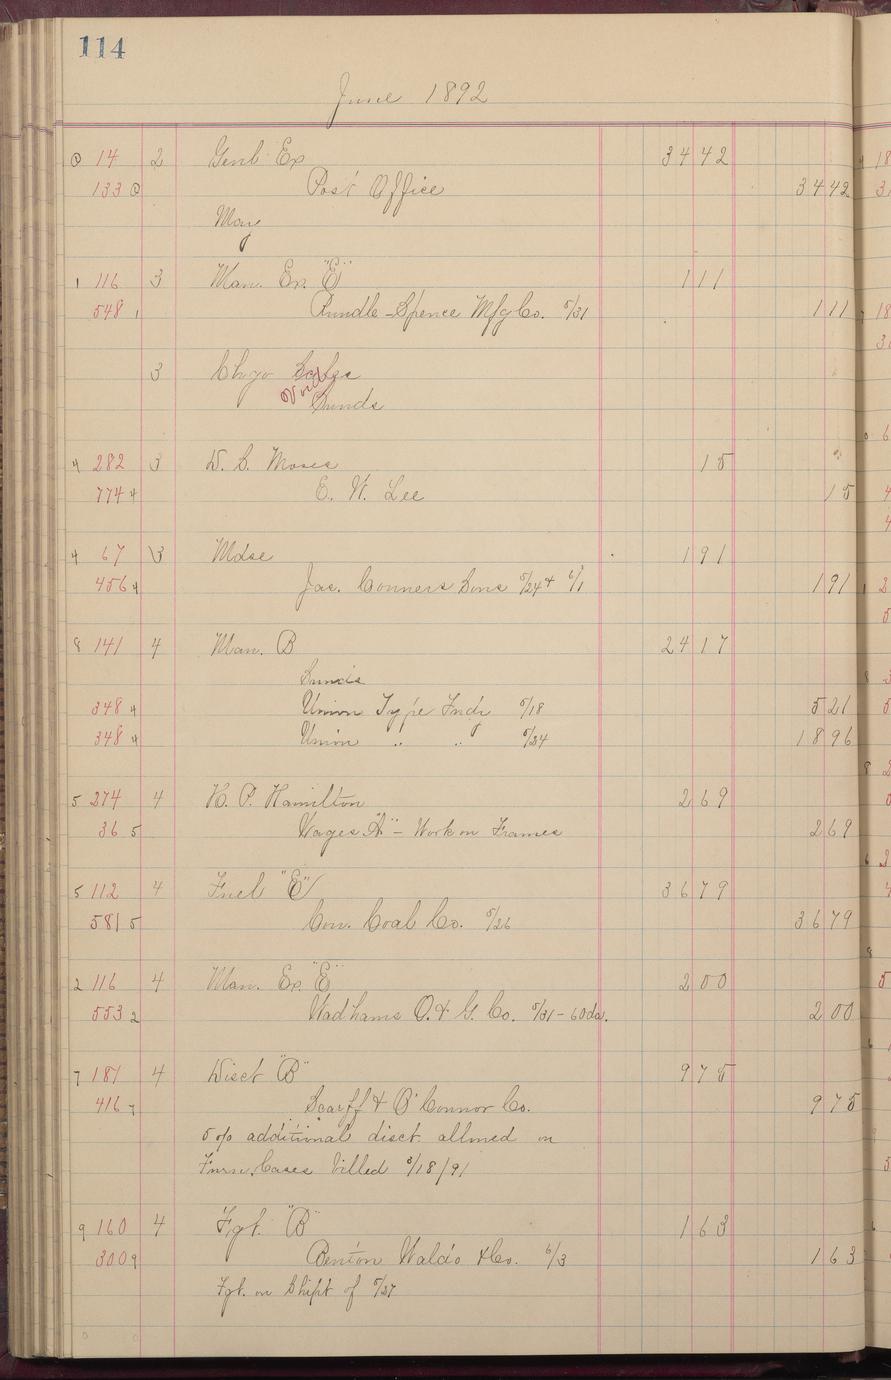 114
June 1892
0 14 2 Genl Ex 34 42
133 0 Post Office 34 42
May
1 116 3 Man. Ex. "E" 1 11
548 1 Rundle-Spence Mfg Co. 5/31 1 11
3 Chgo Sales
Void
Sunds
4 282 3 D. S. Moses 15
774 4 E. W. Lee 15
4 67 3 Mdse 1 91
456 4 Jas. Conners Sons 5/24 + 6/1 1 91
8 141 4 Man. B 24 17
Sunds
348 4 Union Type Fndy 5/18 5 21
348 4 Union " " 5/24 18 96
5 274 4 H. P. Hamilton 2 69
36 5 Wages "A" - Work on Frames 2 69
5 112 4 Fuel "E" 36 79
581 5 Con. Coal Co. 5/26 36 79
2 116 4 Man. Ex. "E" 2 00
553 2 Wadhams O. & G. Co. 5/31 - 60 ds. 2 00
7 181 4 Disct "B" 9 75
416 7 Scarff & O'Connor Co. 9 75
5% additional disct. allowed on
Furn. Cases billed 3/18/91
9 160 4 Fgt. "B" 1 63
300 9 Benton Waldo & Co. 6/3 1 63
Fgt. on Shipt of 5/27